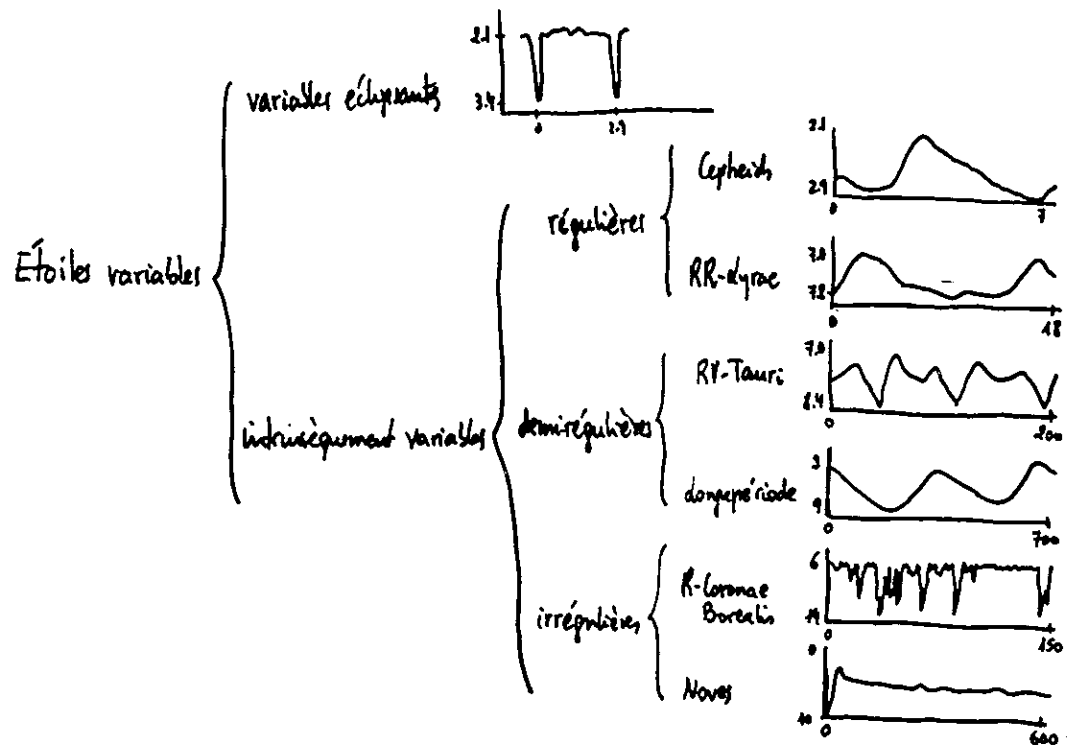 Étoiles variables
variables éclipsants
2.1
3.4
0
2.9
intrinsèquement variables
régulières
Cepheids
2.1
2.9
0
7
RR-Lyrae
7.0
7.8
0
18
demirégulières
RV-Tauri
7.0
8.4
0
200
Longuepériode
3
9
0
700
irrégulières
R-Coronae
Borealis
6
14
0
150
Noves
0
10
0
600